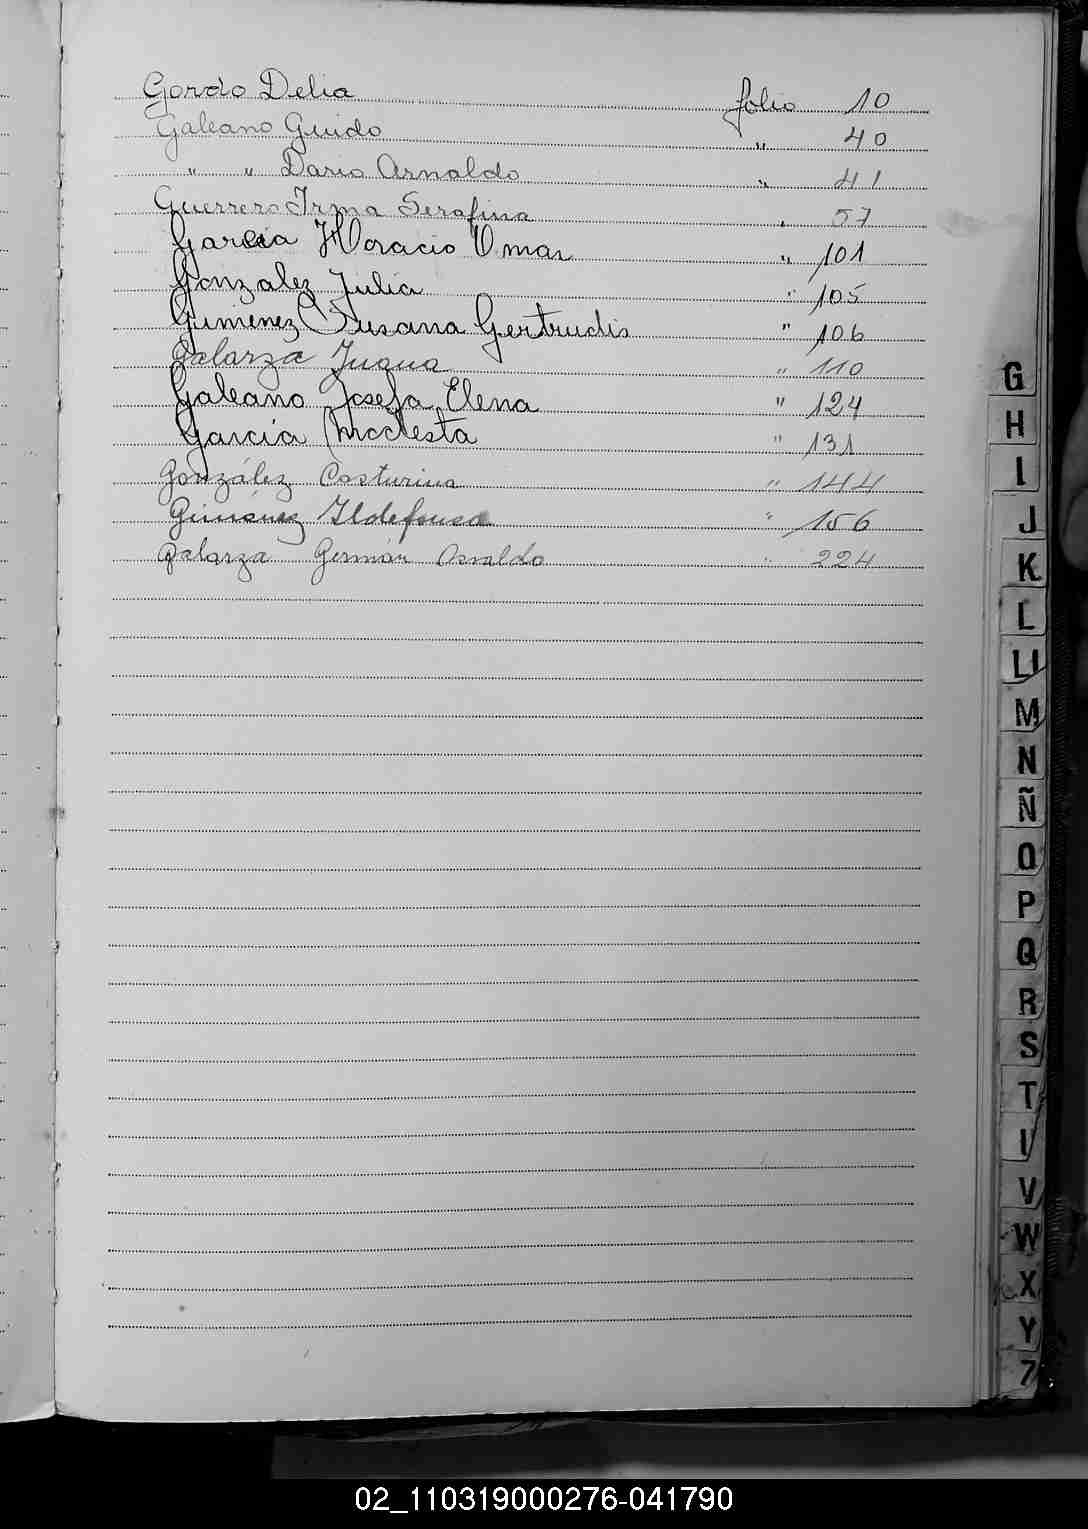 Gordo Delia folio 10
Galeano Guido " 40
" " Dario Arnaldo " 41
Guerrero Irma Serafina " 57
Garcia Horacio Omar " 101
Gonzalez Julia " 105
Gimenez Susana Gertrudis " 106
Galarza Juana " 110
Galeano Josefa Elena " 124
Garcia Modesta " 131
González Casturina " 144
Gimenez Ildefonsa " 156
Galarza Germán Osvaldo " 224
G
H
I
J
K
L
Ll
M
N
Ñ
O
P
Q
R
S
T
V
W
X
Y
02_110319000276-041790